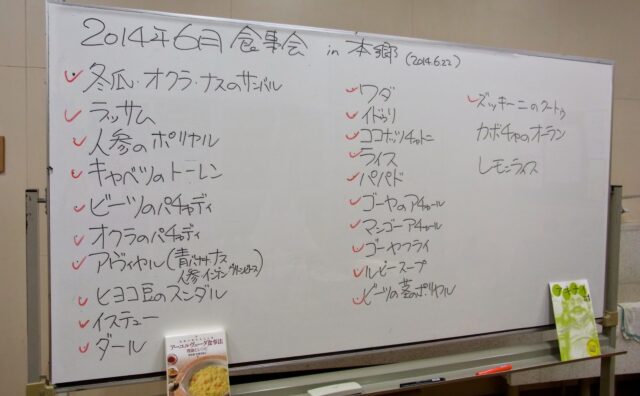 2014年6月 食事会 in 本郷 (2014.6.22)
冬瓜・オクラ・ナスのサンバル
ラッサム
人参のポリヤル
キャベツのトーレン
ビーツのパチャディ
オクラのパチャディ
アヴィヤル(青バナナ ナス
人参 インゲン グリンピース)
ヒヨコ豆のスンダル
イステュー
ダール
ワダ
イドゥリ
ココナッツチャトニ
ライス
パパド
ゴーヤのアチャール
マンゴーアチャール
ゴーヤフライ
ルビースープ
ビーツの茎のポリヤル
ズッキーニのクートゥ
カボチャのオーラン
レモンライス
アーユルヴェーダ食事法